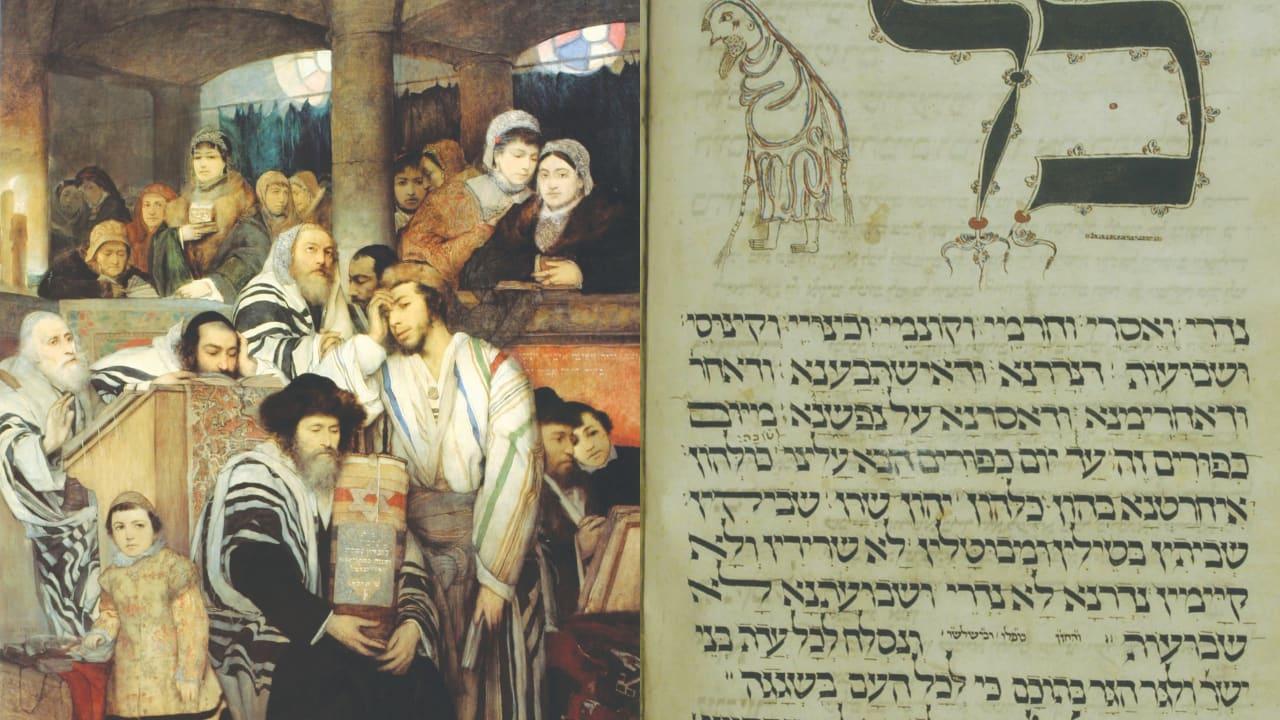 כל
נדרי ואסרי וחרמי וקונמי וכינויי וקינוסי
ושבועות דנדרנא ודאישתבענא ודאחר
ודאחרימנא ודאסרנא על נפשנא מיום
כפורים זה עד יום כפורים הבא עלינו
איחרטנא בהון כלהון יהון שרן שביקין
שביתין בטילין ומבוטלין לא שרירין ולא
קיימין נדרנא לא נדרי ושבועתנא לא
שבועות ונסלח לכל עדת בני
ישר ולגר הגר בתוכם כי לכל העם בשגגה